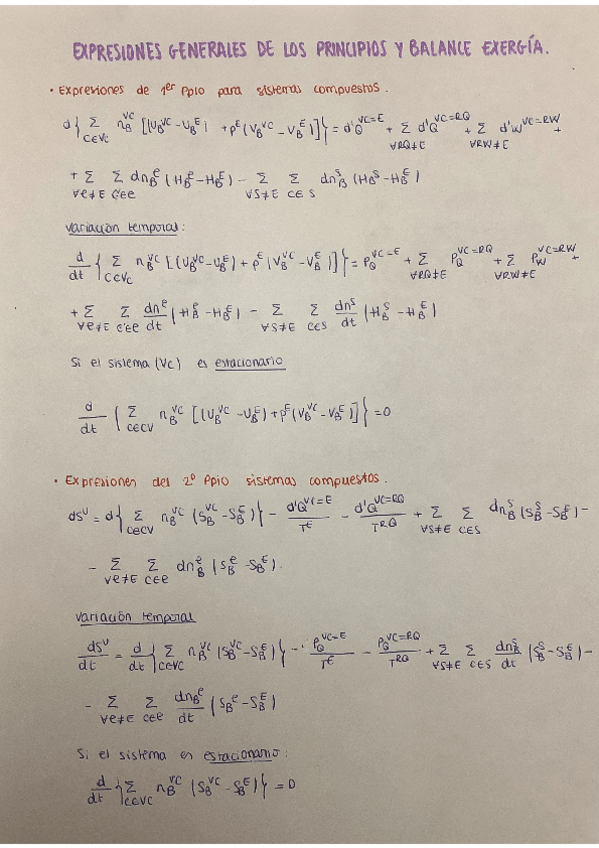 EXPRESIONES GENERALES DE LOS PRINCIPIOS Y BALANCE EXERGÍA.
• Expresiones de 1er Ppio para sistemas compuestos.
d{ Σ_{C∈VC} n_B^{VC} [(U_B^{VC} - U_B^E) + p^E (V_B^{VC} - V_B^E)]} = d'Q^{VC=E} + Σ_{∀RQ≠E} d'Q^{VC=RQ} + Σ_{∀RW≠E} d'W^{VC=RW} +
+ Σ_{∀e≠E} Σ_{C∈e} dn_B^e (H_B^e - H_B^E) - Σ_{∀S≠E} Σ_{C∈S} dn_B^S (H_B^S - H_B^E)
Variación temporal:
d/dt { Σ_{C∈VC} n_B^{VC} [(U_B^{VC} - U_B^E) + p^E (V_B^{VC} - V_B^E)]} = P_Q^{VC=E} + Σ_{∀RQ≠E} P_Q^{VC=RQ} + Σ_{∀RW≠E} P_W^{VC=RW} +
+ Σ_{∀e≠E} Σ_{C∈e} dn_B^e/dt (H_B^e - H_B^E) - Σ_{∀S≠E} Σ_{C∈S} dn_B^S/dt (H_B^S - H_B^E)
Si el sistema (VC) es estacionario
d/dt { Σ_{C∈CV} n_B^{VC} [(U_B^{VC} - U_B^E) + p^E (V_B^{VC} - V_B^E)]} = 0
• Expresiones del 2º Ppio sistemas compuestos.
dS^U = d{ Σ_{C∈CV} n_B^{VC} (S_B^{VC} - S_B^E)} - d'Q^{VC=E}/T^E - d'Q^{VC=RQ}/T^{RQ} + Σ_{∀S≠E} Σ_{C∈S} dn_B^S (S_B^S - S_B^E) -
- Σ_{∀e≠E} Σ_{C∈e} dn_B^e (S_B^e - S_B^E).
Variación temporal
dS^U/dt = d/dt { Σ_{C∈VC} n_B^{VC} (S_B^{VC} - S_B^E)} - P_Q^{VC=E}/T^E - P_Q^{VC=RQ}/T^{RQ} + Σ_{∀S≠E} Σ_{C∈S} dn_B^S/dt (S_B^S - S_B^E) -
- Σ_{∀e≠E} Σ_{C∈e} dn_B^e/dt (S_B^e - S_B^E)
Si el sistema es estacionario:
d/dt { Σ_{C∈VC} n_B^{VC} (S_B^{VC} - S_B^E)} = 0